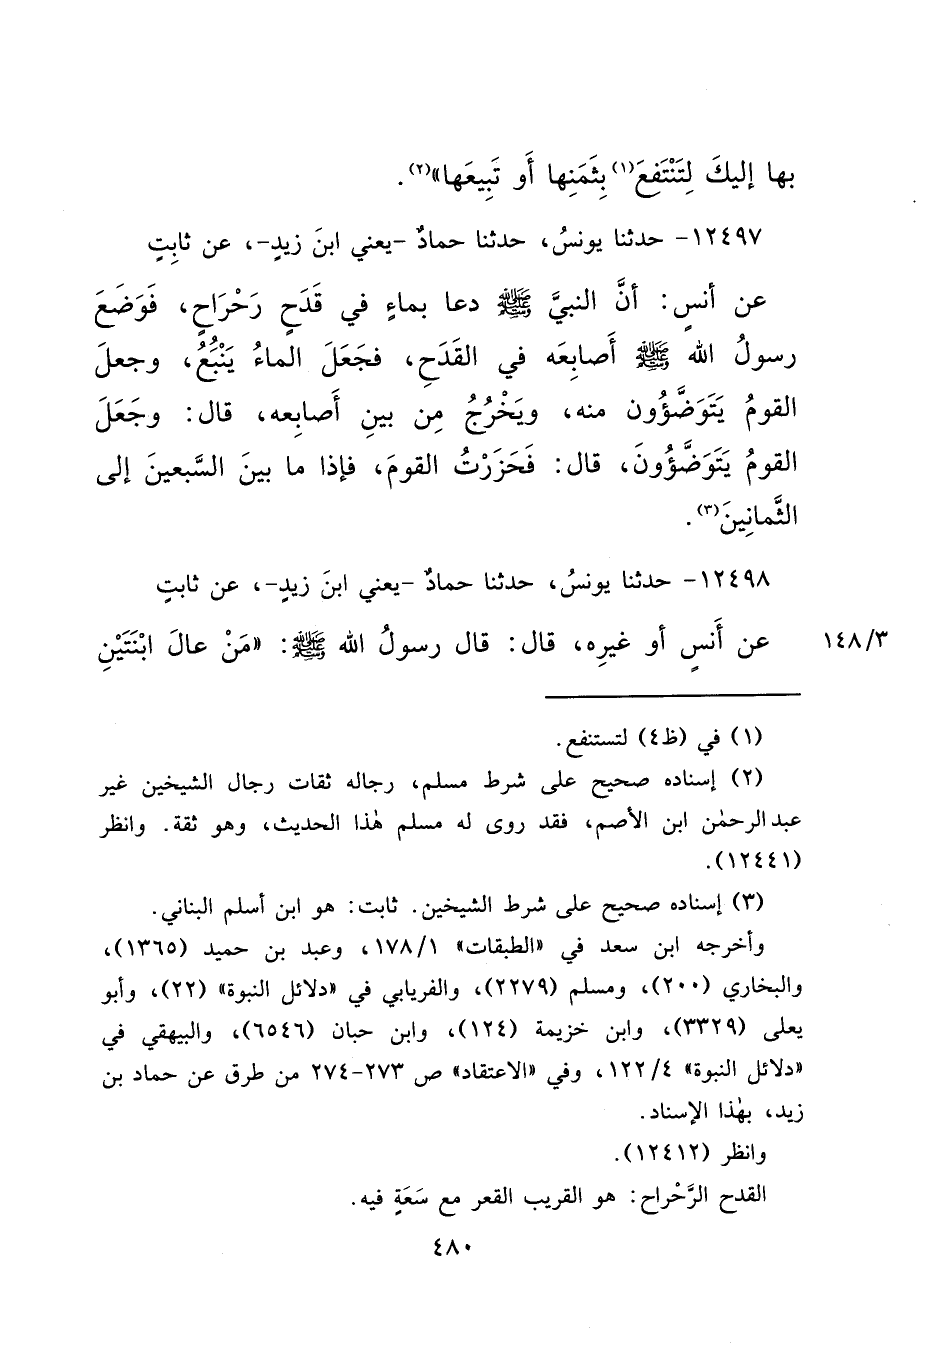 بها إليكَ لِتَنْتَفِعَ(١) بِثَمَنِها أَو تَبِيعَها»(٢).
١٢٤٩٧- حدثنا يونسُ، حدثنا حمادٌ -يعني ابنَ زيدٍ-، عن ثابِتٍ
عن أنسٍ: أنَّ النبيَّ ﷺ دعا بماءٍ في قَدَحٍ رَحْرَاحٍ، فَوَضَعَ
رسولُ الله ﷺ أَصابِعَه في القَدَحِ، فجَعَلَ الماءُ يَنْبُعُ، وجعلَ
القومُ يَتَوَضَّؤُون منه، ويَخْرُجُ مِن بينِ أَصابِعه، قال: وجَعَلَ
القومُ يَتَوَضَّؤُونَ، قال: فَحَزَرْتُ القومَ، فإذا ما بينَ السَّبعينَ إلى
الثَّمانِينَ(٣).
١٢٤٩٨- حدثنا يونسُ، حدثنا حمادٌ -يعني ابنَ زيدٍ-، عن ثابتٍ
عن أَنسٍ أو غيرِه، قال: قال رسولُ الله ﷺ: «مَنْ عالَ ابْنَتَيْنِ
١٤٨/٣
(١) في (ظ٤) لتستنفع.
(٢) إسناده صحيح على شرط مسلم، رجاله ثقات رجال الشيخين غير
عبدالرحمٰن ابن الأصم، فقد روى له مسلم هٰذا الحديث، وهو ثقة. وانظر
(١٢٤٤١).
(٣) إسناده صحيح على شرط الشيخين. ثابت: هو ابن أسلم البناني.
وأخرجه ابن سعد في «الطبقات» ١٧٨/١، وعبد بن حميد (١٣٦٥)،
والبخاري (٢٠٠)، ومسلم (٢٢٧٩)، والفريابي في «دلائل النبوة» (٢٢)، وأبو
يعلى (٣٣٢٩)، وابن خزيمة (١٢٤)، وابن حبان (٦٥٤٦)، والبيهقي في
«دلائل النبوة» ١٢٢/٤، وفي «الاعتقاد» ص ٢٧٣-٢٧٤ من طرق عن حماد بن
زيد، بهٰذا الإسناد.
وانظر (١٢٤١٢).
القدح الرَّحْراح: هو القريب القعر مع سَعَةٍ فيه.
٤٨٠